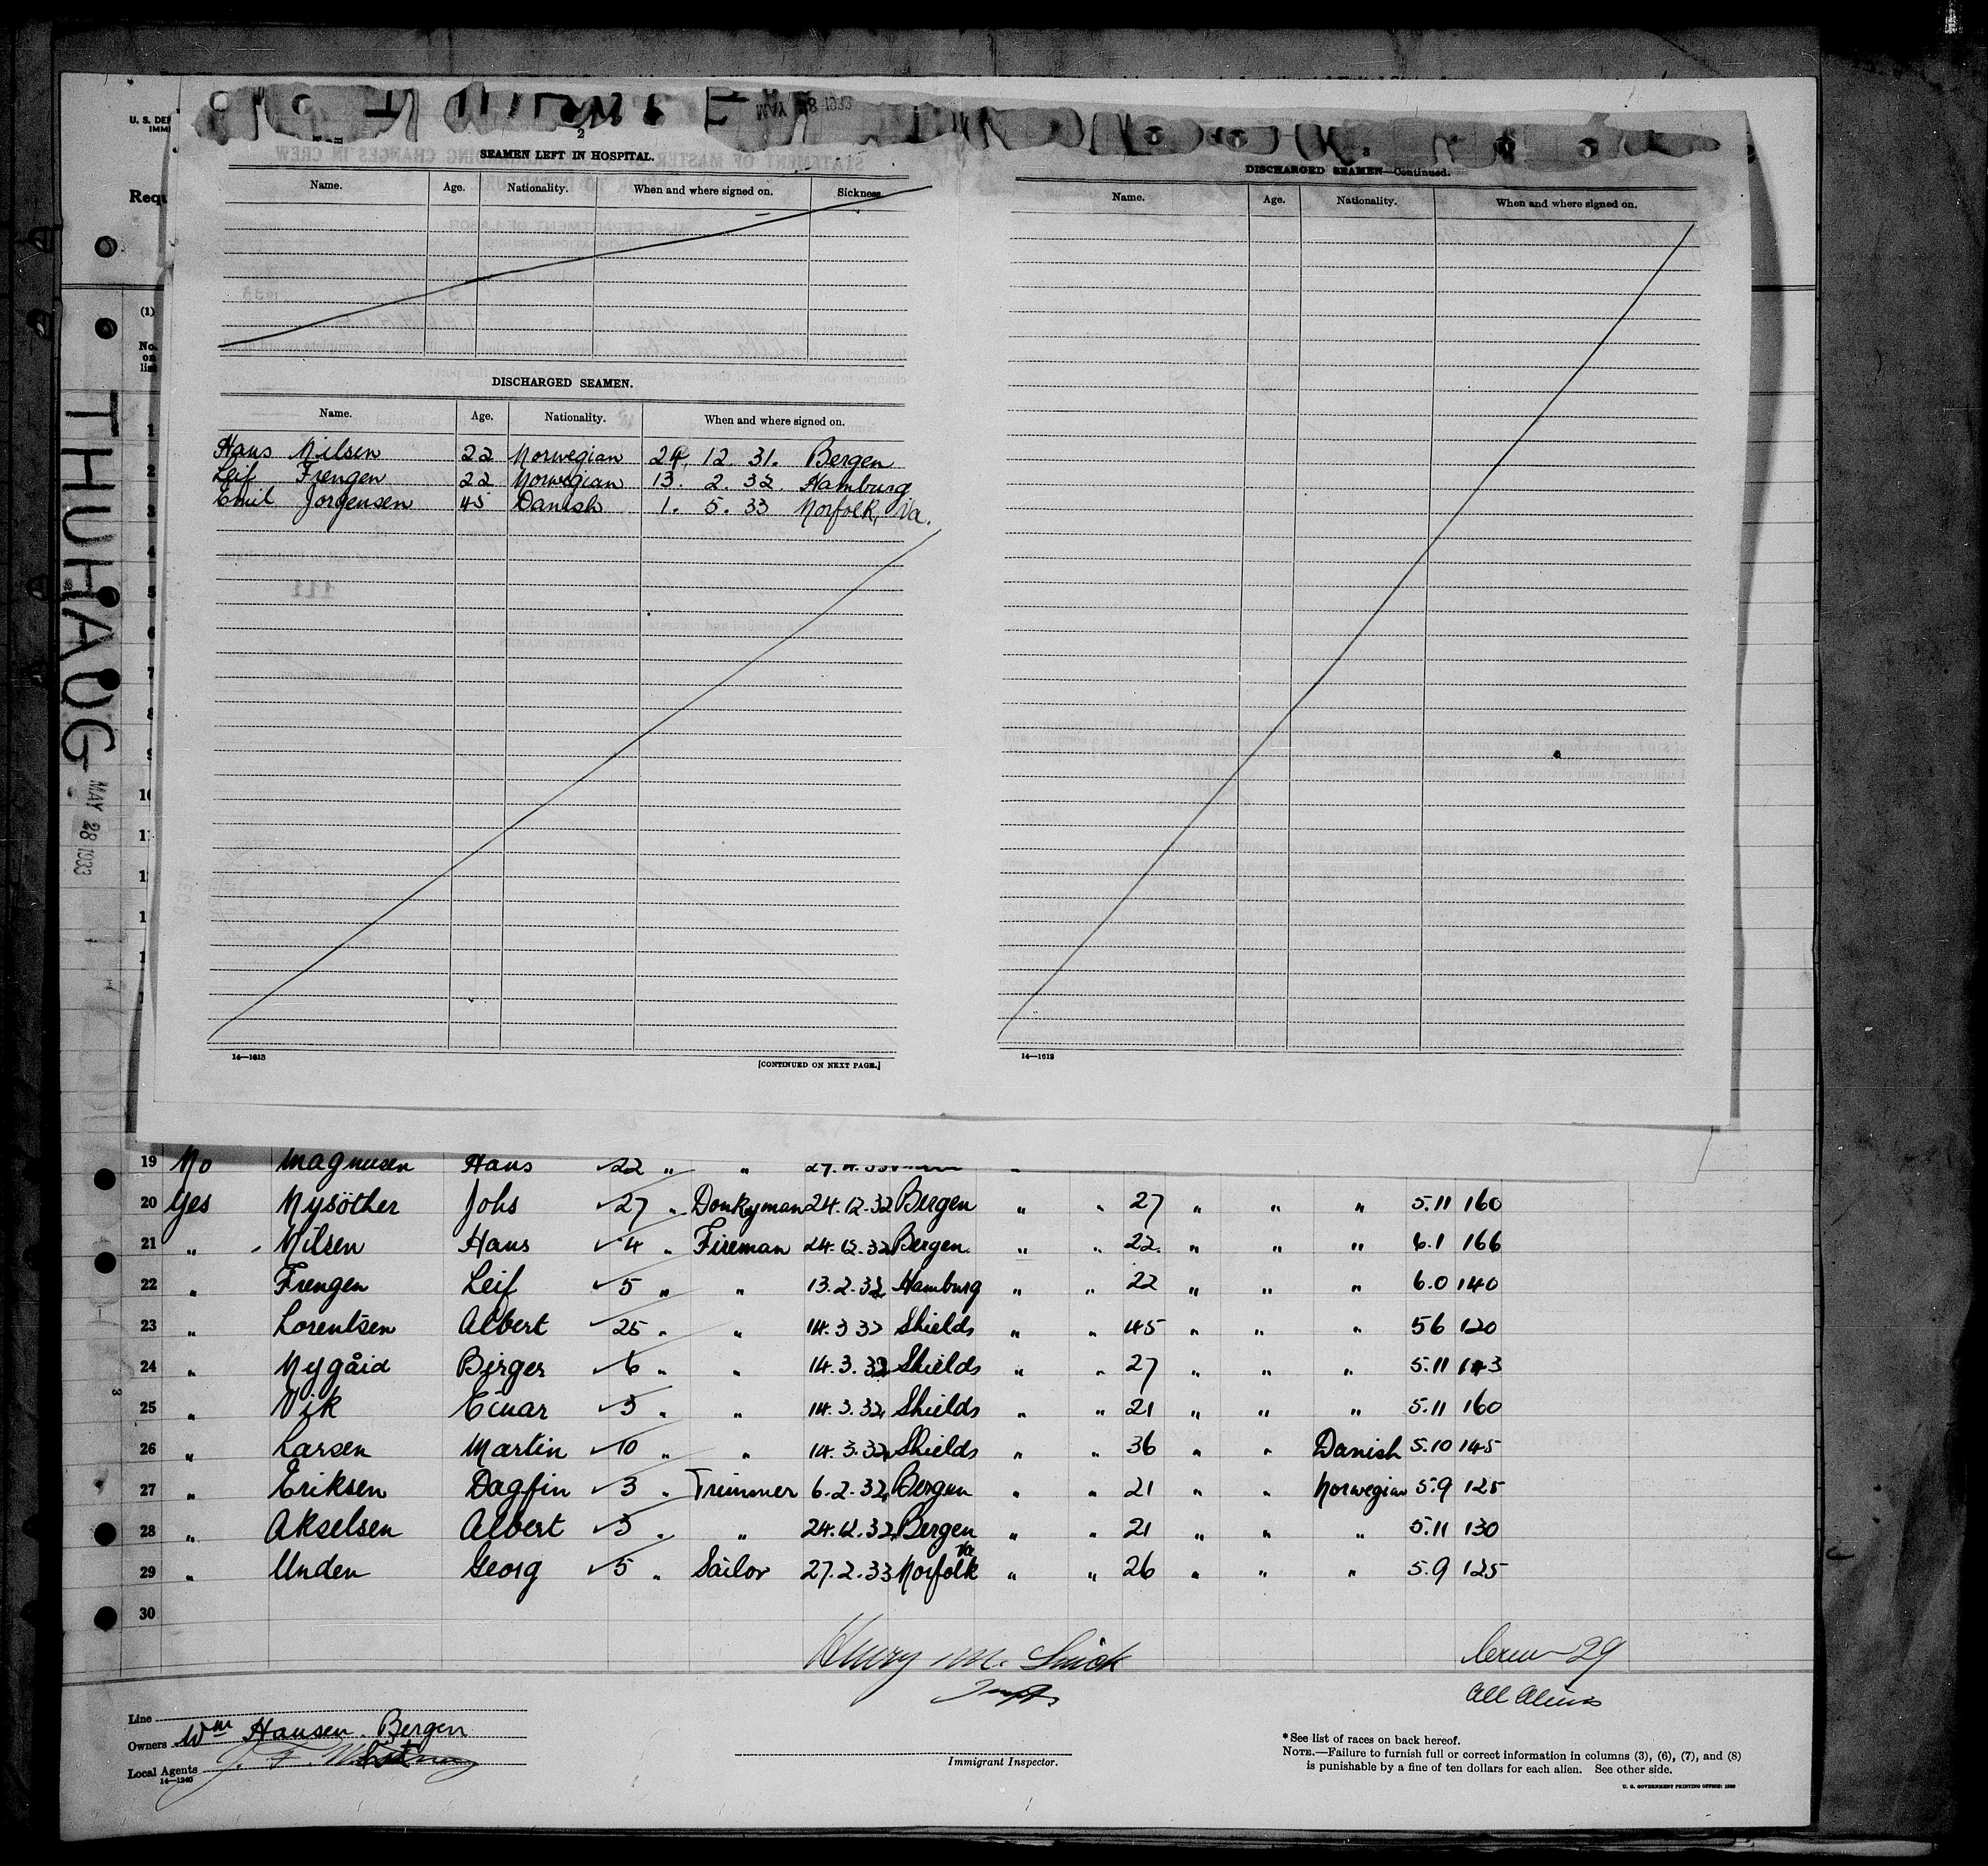 U. S. DE
IMM
Requ
(1)
No.
on
list
THUHAUG
MAY 28 1933
MAY 28 1933
2
SEAMEN LEFT IN HOSPITAL.
Name. Age. Nationality. When and where signed on. Sickness
DISCHARGED SEAMEN.
Name. Age. Nationality. When and where signed on.
Hans Nilsen 22 Norwegian 24. 12. 31. Bergen
Leif Frengen 22 Norwegian 13. 2. 32 Hamburg
Emil Jorgensen 45 Danish 1. 5. 33 Norfolk, Va.
14—1613
[CONTINUED ON NEXT PAGE.]
3
DISCHARGED SEAMEN—Continued.
Name. Age. Nationality. When and where signed on.
14—1613
19 No Magnusen Hans 22 " "
20 Yes Nysöther Johs 27 " Donkyman 24.12.32 Bergen " " 27 " " " 5.11 160
21 " Nilsen Hans 4 " Fireman 24.12.32 Bergen " " 22 " " " 6.1 166
22 " Frengen Leif 5 " " 13.2.32 Hamburg " " 22 " " " 6.0 140
23 " Lorentsen Albert 25 " " 14.3 32 Shields " " 45 " " " 56 120
24 " Nygåid Birger 6 " " 14.3.32 Shields " " 27 " " " 5.11 143
25 " Vik Einar 3 " " 14.3.32 Shields " " 21 " " " 5.11 160
26 " Larsen Martin 10 " " 14.3.32 Shields " " 36 " " Danish 5.10 145
27 " Eriksen Dagfin 3 " Trimmer 6.2.32 Bergen " " 21 " " Norwegian 5.9 125
28 " Akselsen Albert 3 " " 24.12.32 Bergen " " 21 " " " 5.11 130
29 " Unden Georg 5 " Sailor 27.2.33 Norfolk Va " " 26 " " " 5.9 125
30
Henry M. Smick
Crew 29
All Aliens
Line
Owners Wm Hansen. Bergen
Local Agents J. F. Whitney
14—1240
Immigrant Inspector.
* See list of races on back hereof.
NOTE.—Failure to furnish full or correct information in columns (3), (6), (7), and (8)
is punishable by a fine of ten dollars for each alien. See other side.
U. S. GOVERNMENT PRINTING OFFICE: 1930